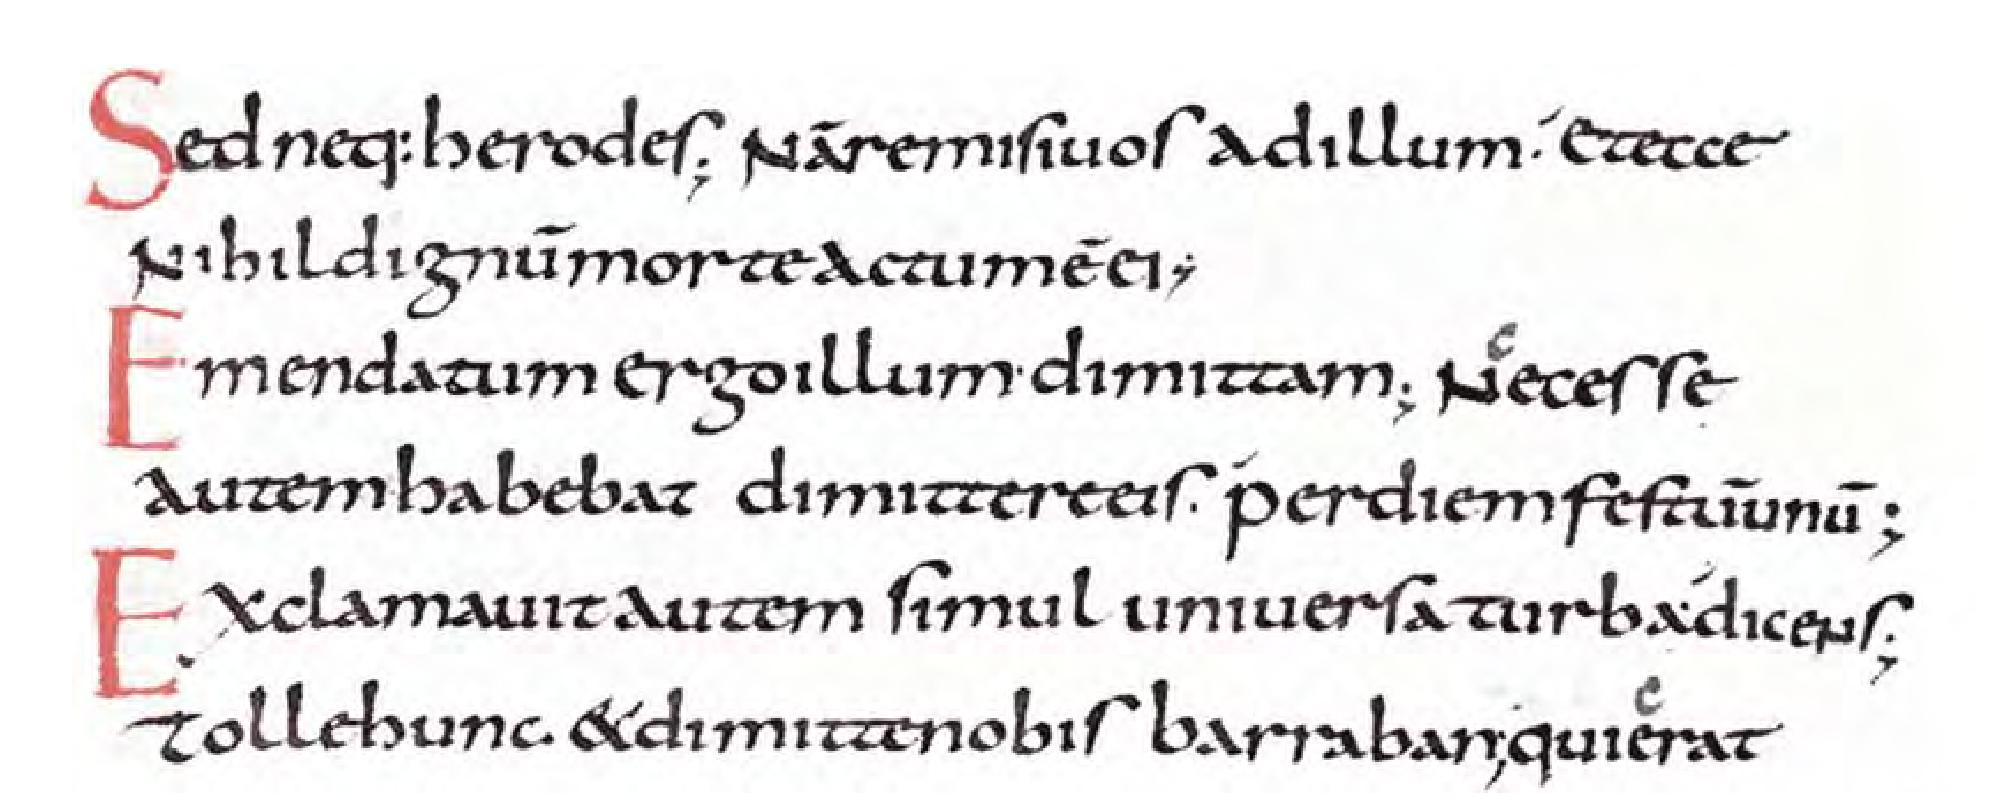 Sed neq: herodes; Nā remisi uos ad illum. Et ecce
Nihil dignū morte actum ē ei;
Emendatum ergo illum dimittam; Necesse
autem habebat dimittere eis. per diem festū unū;
Exclamauit autem simul uniuersa turba dicens;
Tolle hunc. & dimitte nobis barraban; qui erat